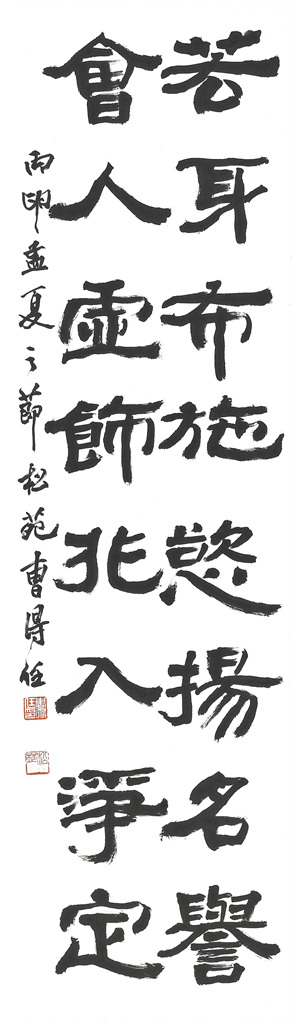 若耳布施慾揚名譽
會人虛飾非入淨定
丙申孟夏之節松苑曹得任